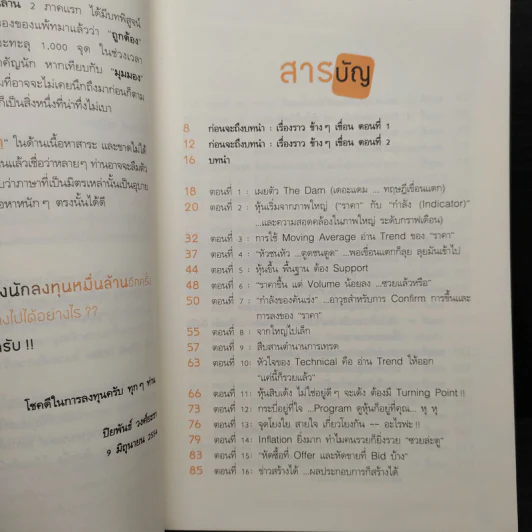 ล้าน 2 ภาคแรก ได้มีบทพิสูจน์
องของแพ้ทมาแล้วว่า "ถูกต้อง"
ะทะลุ 1,000 จุด ในช่วงเวลา
คัญนัก หากเทียบกับ "มุมมอง"
มที่อาจจะไม่เคยนึกถึงมาก่อนก็ตาม
ก็เป็นสิ่งหนึ่งที่น่าทึ่งไม่เบา
ในด้านเนื้อหาสาระ และขาดไม่ได้
นแล้วเชื่อว่าหลายๆ ท่านอาจจะลืมตัว
บว่าภาษาที่เป็นมิตรเหล่านั้นเป็นอุบาย
อหาหนักๆ ตรงนั้นได้ดี
งนักลงทุนหมื่นล้านอีกครั้ง
างไปได้อย่างไร ??
ครับ !!
โชคดีในการลงทุนครับ ทุกๆ ท่าน
ปิยพันธ์ วงศ์ยะรา
9 มิถุนายน 2554
สารบัญ
8 ก่อนจะถึงบทนำ : เรื่องราว ข้างๆ เขื่อน ตอนที่ 1
12 ก่อนจะถึงบทนำ : เรื่องราว ข้างๆ เขื่อน ตอนที่ 2
16 บทนำ
18 ตอนที่ 1 : เผยตัว The Dam (เดอะแดม ... ทฤษฎีเขื่อนแตก)
20 ตอนที่ 2 : หุ้นเริ่มจากภาพใหญ่ ("ราคา" กับ "กำลัง (Indicator)"
...และความสอดคล้องในภาพใหญ่ ระดับกราฟเดือน)
32 ตอนที่ 3 : การใช้ Moving Average อ่าน Trend ของ "ราคา"
37 ตอนที่ 4 : "หัวชนหัว ...ตูดชนตูด" ...พอเขื่อนแตกก็ลุย ลุยมันเข้าไป
44 ตอนที่ 5 : หุ้นขึ้น พื้นฐาน ต้อง Support
48 ตอนที่ 6 : "ราคาขึ้น แต่ Volume น้อยลง ...ซวยแล้วหรือ"
50 ตอนที่ 7 : "กำลังของคันเร่ง" ...อาวุธสำหรับการ Confirm การขึ้นและ
การลงของ "ราคา"
55 ตอนที่ 8 : จากใหญ่ไปเล็ก
57 ตอนที่ 9 : สืบสานตำนานการเทรด
63 ตอนที่ 10: หัวใจของ Technical คือ อ่าน Trend ให้ออก
"แค่นี้ก็รวยแล้ว"
66 ตอนที่ 11: หุ้นสิบเด้ง ไม่ใช่อยู่ดีๆ จะเด้ง ต้องมี Turning Point !!
73 ตอนที่ 12: กระบี่อยู่ที่ใจ ...Program ดูหุ้นก็อยู่ที่คุณ... หุ หุ
76 ตอนที่ 13: จุดโยงใย สายใจ เกี่ยวโยงกัน -- อะไรฟะ !!
79 ตอนที่ 14: Inflation ยิ่งมาก ทำไมคนรวยก็ยิ่งรวย "ซวยล่ะตู"
83 ตอนที่ 15: "หัดซื้อที่ Offer และหัดขายที่ Bid บ้าง"
85 ตอนที่ 16: ข่าวสร้างได้ ...ผลประกอบการก็สร้างได้